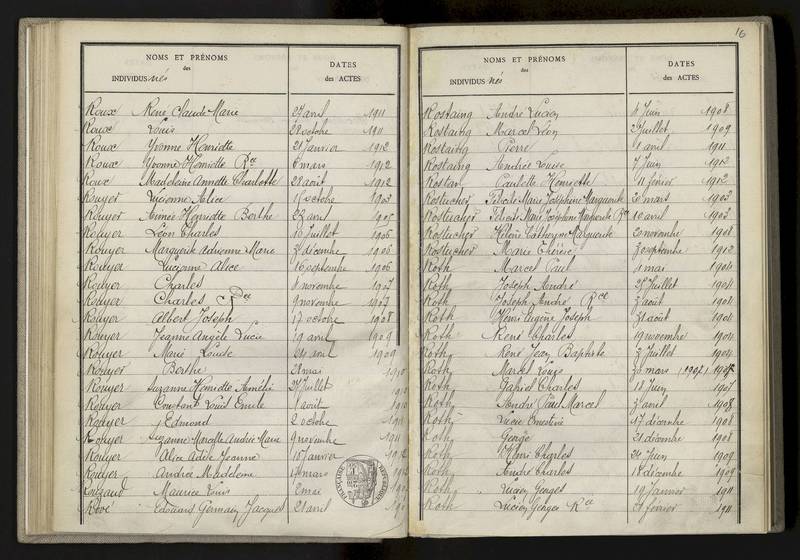 NOMS ET PRÉNOMS
des
INDIVIDUS nés
DATES
des ACTES
Roux René Claude Marie 27 avril 1911
Roux Louis 28 octobre 1911
Roux Yvonne Henriette 21 Janvier 1912
Roux Yvonne Henriette Rce 6 mars 1912
Roux Madeleine Annette Charlotte 28 août 1912
Rouyer Lucienne Alice octobre 1903
Rouyer Aimée Henriette Berthe 22 avril 1905
Rouyer Léon Charles Juillet 1906
Rouyer Marguerite Adrienne Marie décembre 1906
Rouyer Lucienne Alice 16 septembre 1906
Rouyer Charles 8 novembre 1907
Rouyer Charles 9 novembre 1907
Rouyer Albert Joseph 17 octobre 1908
Rouyer Jeanne Angèle Lucie 19 avril 1909
Rouyer Marie Louise avril 1909
Rouyer Berthe 28 mai 1910
Rouyer Suzanne Henriette Amélie Juillet
Rouyer Constant Louis Emile août
Rouyer Edmond 2 octobre
Rouyer Suzanne Marcelle Andrée Marie 9 novembre
Rouyer Alice Adèle Jeanne 18 Janvier
Rouyer Andrée Madeleine mars
Maurice Louis 2 mai
Edouard Germain Jacques 21 avril
RÉPUBLIQUE FRANÇAISE
16
NOMS ET PRÉNOMS
des
INDIVIDUS nés
DATES
des ACTES
Rostaing André Lucien 4 Juin 1908
Rostaing Marcel Léon Juillet 1909
Rostaing Pierre 1 avril 1911
Rostaing Andrée Louise 7 Juin 1912
Rostan Paulette Henriette 11 février 1912
Rostucher Marie Joséphine Marguerite 20 mars 1903
Rostucher Marie Joséphine Marguerite Rce 10 avril 1903
Rostucher Hélène Catherine Marguerite 20 novembre 1908
Rostucher Marie Thérèse septembre 1912
Roth Marcel Paul 1 mai 1904
Roth Joseph André Juillet 1904
Roth Joseph André Rce août 1904
Roth Henri Eugène Joseph août 1904
Roth René Charles 19 novembre 1904
Roth René Jean Baptiste Juillet 1904
Roth Marcel Louis mars (1907) 1907
Roth Gabriel Charles 18 Juin 1907
Roth André Paul Marcel avril 1908
Roth Lucie Ernestine 17 décembre 1908
Roth George 21 décembre 1908
Roth Henri Charles 24 Juin 1909
Roth André Charles 18 décembre 1909
Roth Lucien Georges 19 Janvier 1911
Roth Lucien Georges Rce février 1911